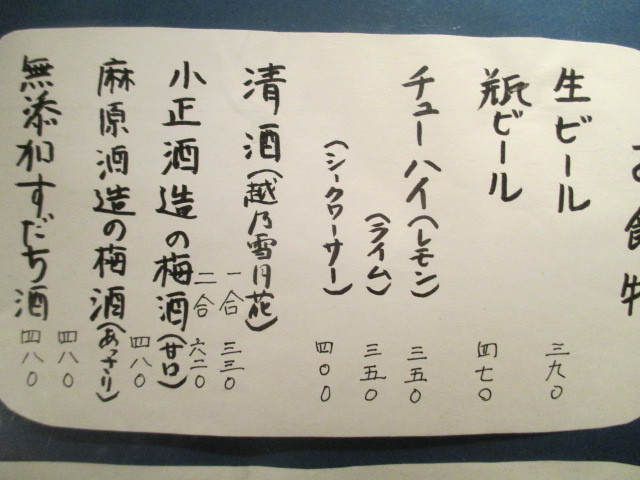 お飲物
生ビール 三九〇
瓶ビール 四七〇
チューハイ(レモン) 三五〇
(ライム) 三五〇
(シークワーサー) 四〇〇
清酒(越乃雪月花)
一合 三三〇
二合 六二〇
小正酒造の梅酒(甘口) 四八〇
麻原酒造の梅酒(あっさり) 四八〇
無添加すだち酒 四八〇